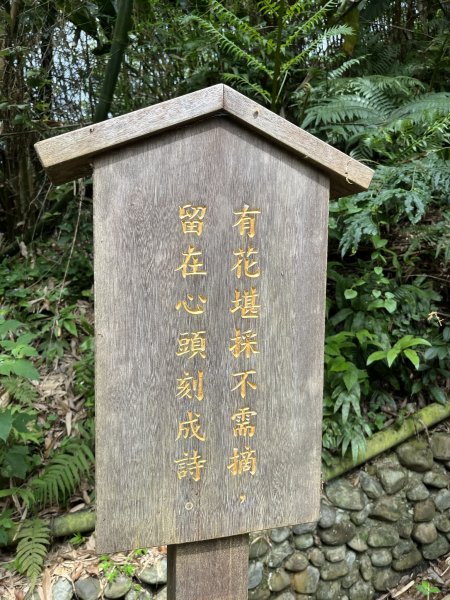 有花堪採不需摘，
留在心頭刻成詩。